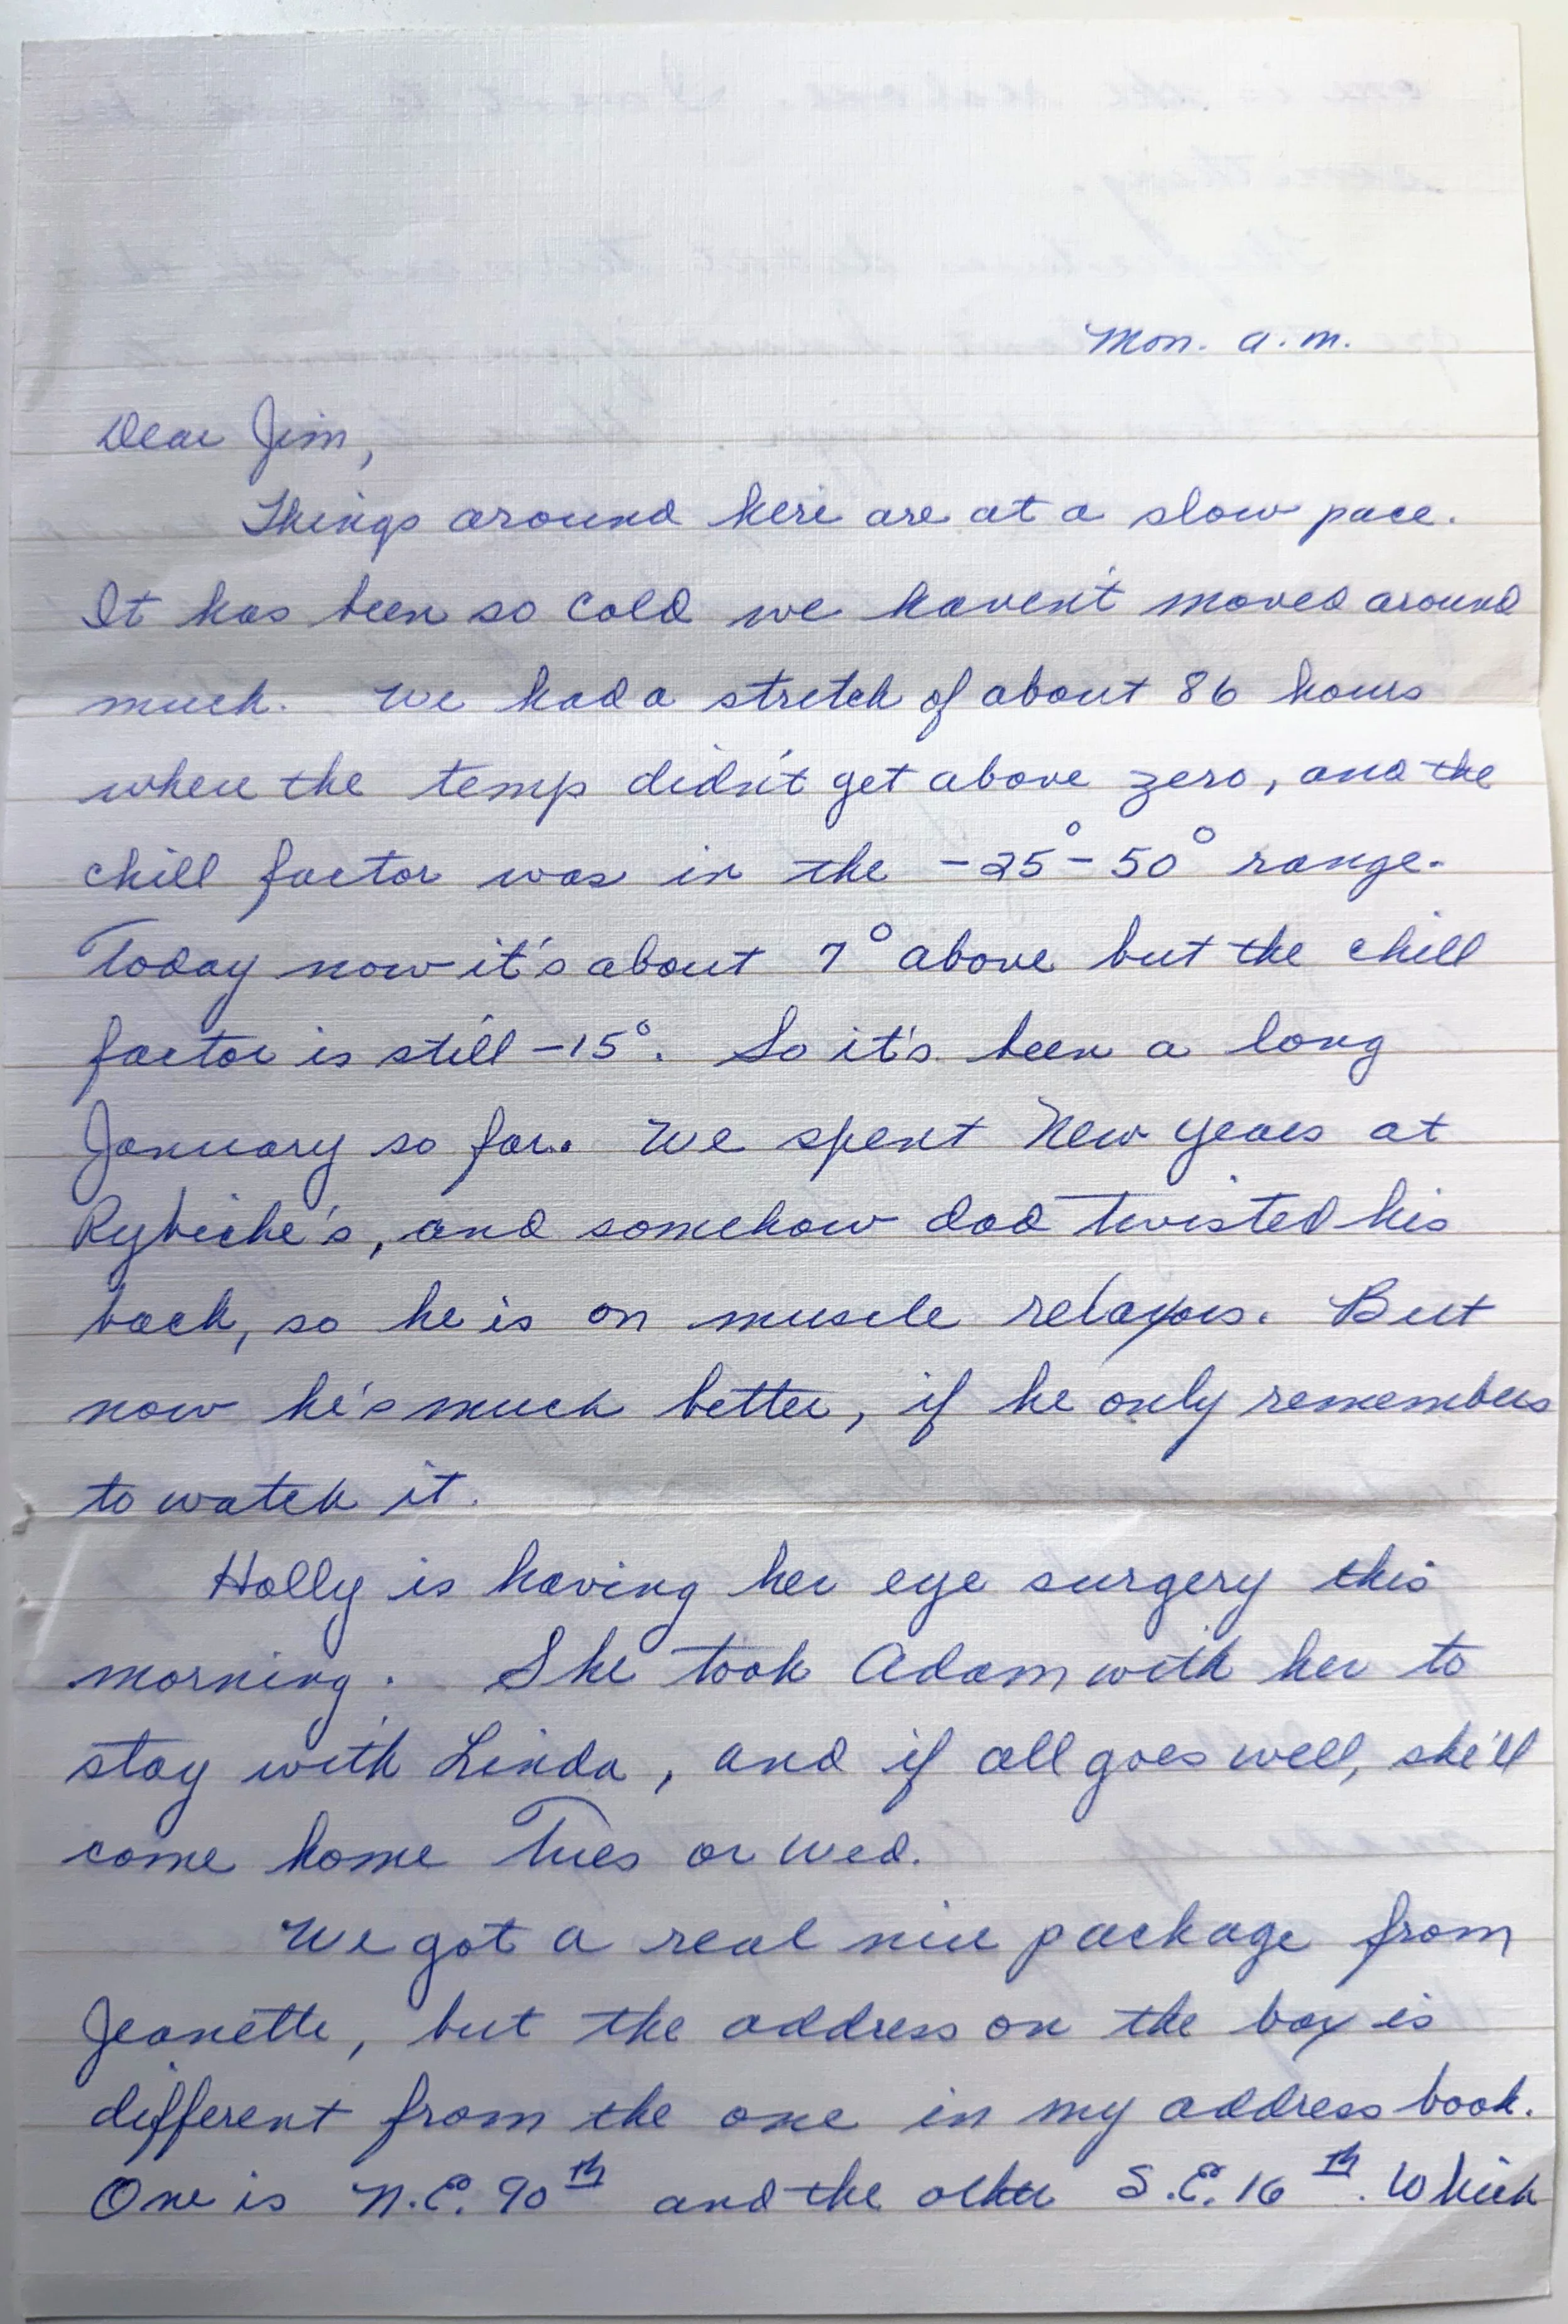 Mon. a.m.
Dear Jim,
Things around here are at a slow pace.
It has been so cold we haven't moved around
much. We had a stretch of about 86 hours
where the temp didn't get above zero, and the
chill factor was in the -25° - 50° range.
Today now it's about 7° above but the chill
factor is still -15°. So it's been a long
January so far. We spent New Years at
and somehow dad twisted his
back, so he is on muscle relaxors. But
now he's much better, if he only remembers
to watch it.
Holly is having her eye surgery this
morning. She took Adam with her to
stay with Linda, and if all goes well, she'll
come home Tues or Wed.
We got a real nice package from
Jeanette, but the address on the box is
different from the one in my address book.
One is N.E. 90th and the other S.E. 16th. Which